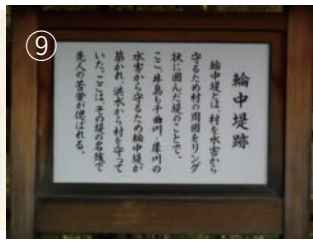 ⑨
輪中堤跡
輪中堤とは、村を水害から
守るため村の周囲をリング
状に囲んだ堤のことで、
ここ、林島も千曲川・犀川の
水害から守るため輪中堤が
築かれ、洪水から村を守って
いた。ここは、その堤の名残で
先人の苦労が偲ばれる。